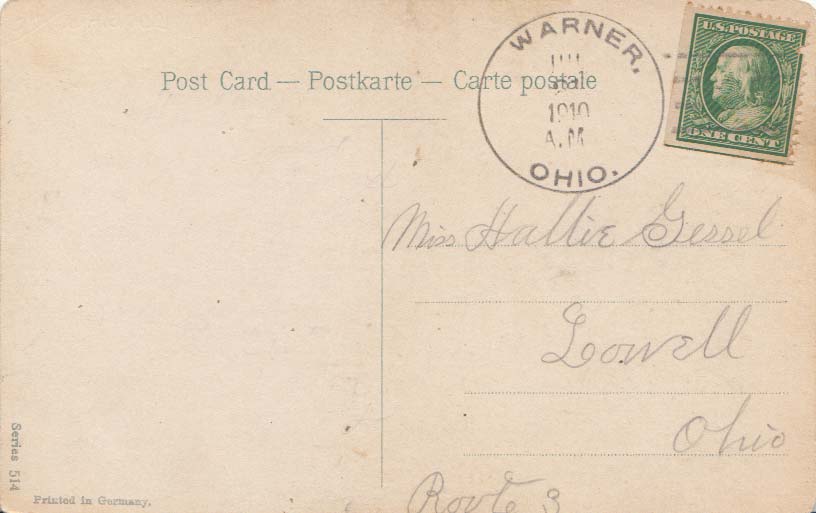 Post Card — Postkarte — Carte postale
WARNER,
1910
A.M
OHIO.
U.S. POSTAGE
ONE CENT
Miss Hallie Gessel
Lowell
Ohio
Route 3
Series 514
Printed in Germany.